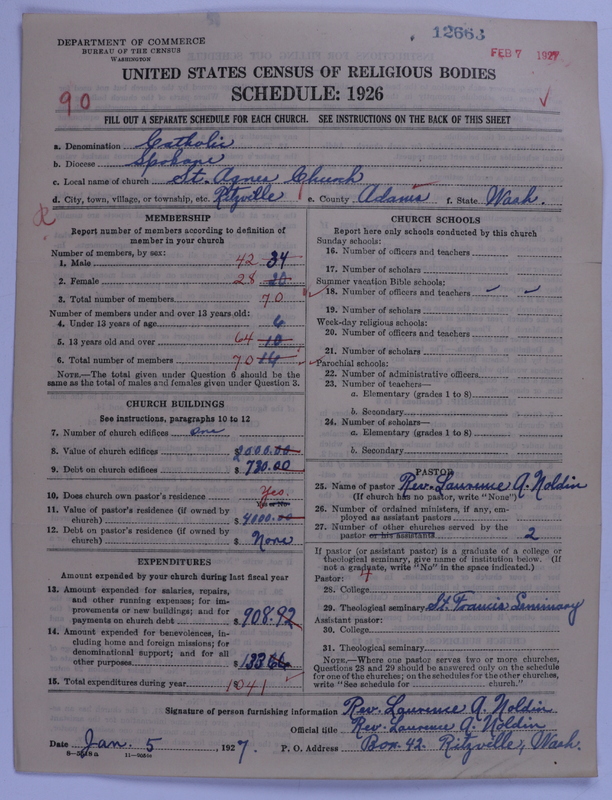 12663
DEPARTMENT OF COMMERCE
BUREAU OF THE CENSUS
WASHINGTON
FEB 7 1927
UNITED STATES CENSUS OF RELIGIOUS BODIES
SCHEDULE: 1926
90
FILL OUT A SEPARATE SCHEDULE FOR EACH CHURCH. SEE INSTRUCTIONS ON THE BACK OF THIS SHEET
a. Denomination Catholic
b. Diocese Spokane
c. Local name of church St. Agnes Church
d. City, town, village, or township, etc. Ritzville e. County Adams f. State Wash.
MEMBERSHIP
Report number of members according to definition of
member in your church
Number of members, by sex:
1. Male 42 34
2. Female 28 20
3. Total number of members 70
Number of members under and over 13 years old:
4. Under 13 years of age 6
5. 13 years old and over 64 10
6. Total number of members 70 16
NOTE.—The total given under Question 6 should be the
same as the total of males and females given under Question 3.
CHURCH BUILDINGS
See instructions, paragraphs 10 to 12
7. Number of church edifices one
8. Value of church edifices $2000.00
9. Debt on church edifices $730.00
10. Does church own pastor's residence Yes.
Yes or No
11. Value of pastor's residence (if owned by
church) $4000.00
12. Debt on pastor's residence (if owned by
church) $ None
EXPENDITURES
Amount expended by your church during last fiscal year
13. Amount expended for salaries, repairs,
and other running expenses; for im-
provements or new buildings; and for
payments on church debt $908.92
14. Amount expended for benevolences, in-
cluding home and foreign missions; for
denominational support; and for all
other purposes $133.66
15. Total expenditures during year 1041
CHURCH SCHOOLS
Report here only schools conducted by this church
Sunday schools:
16. Number of officers and teachers
17. Number of scholars
Summer vacation Bible schools:
18. Number of officers and teachers
19. Number of scholars
Week-day religious schools:
20. Number of officers and teachers
21. Number of scholars
Parochial schools:
22. Number of administrative officers
23. Number of teachers—
a. Elementary (grades 1 to 8)
b. Secondary
24. Number of scholars—
a. Elementary (grades 1 to 8)
b. Secondary
PASTOR
25. Name of pastor Rev. Laurence A. Noldin
(If church has no pastor, write "None")
26. Number of ordained ministers, if any, em-
ployed as assistant pastors
27. Number of other churches served by the
pastor or his assistants 2
If pastor (or assistant pastor) is a graduate of a college or
theological seminary, give name of institution below. (If
not a graduate, write "No" in the space indicated.)
Pastor: 4
28. College
29. Theological seminary St. Francis Seminary
Assistant pastor:
30. College
31. Theological seminary
NOTE.—Where one pastor serves two or more churches,
Questions 28 and 29 should be answered only on the schedule
for one of the churches; on the schedules for the other churches,
write "See schedule for church."
Signature of person furnishing information Rev. Laurence A. Noldin
Official title Rev. Laurence A. Noldin
Date Jan. 5, 1927. P. O. Address Box 42. Ritzville, Wash.